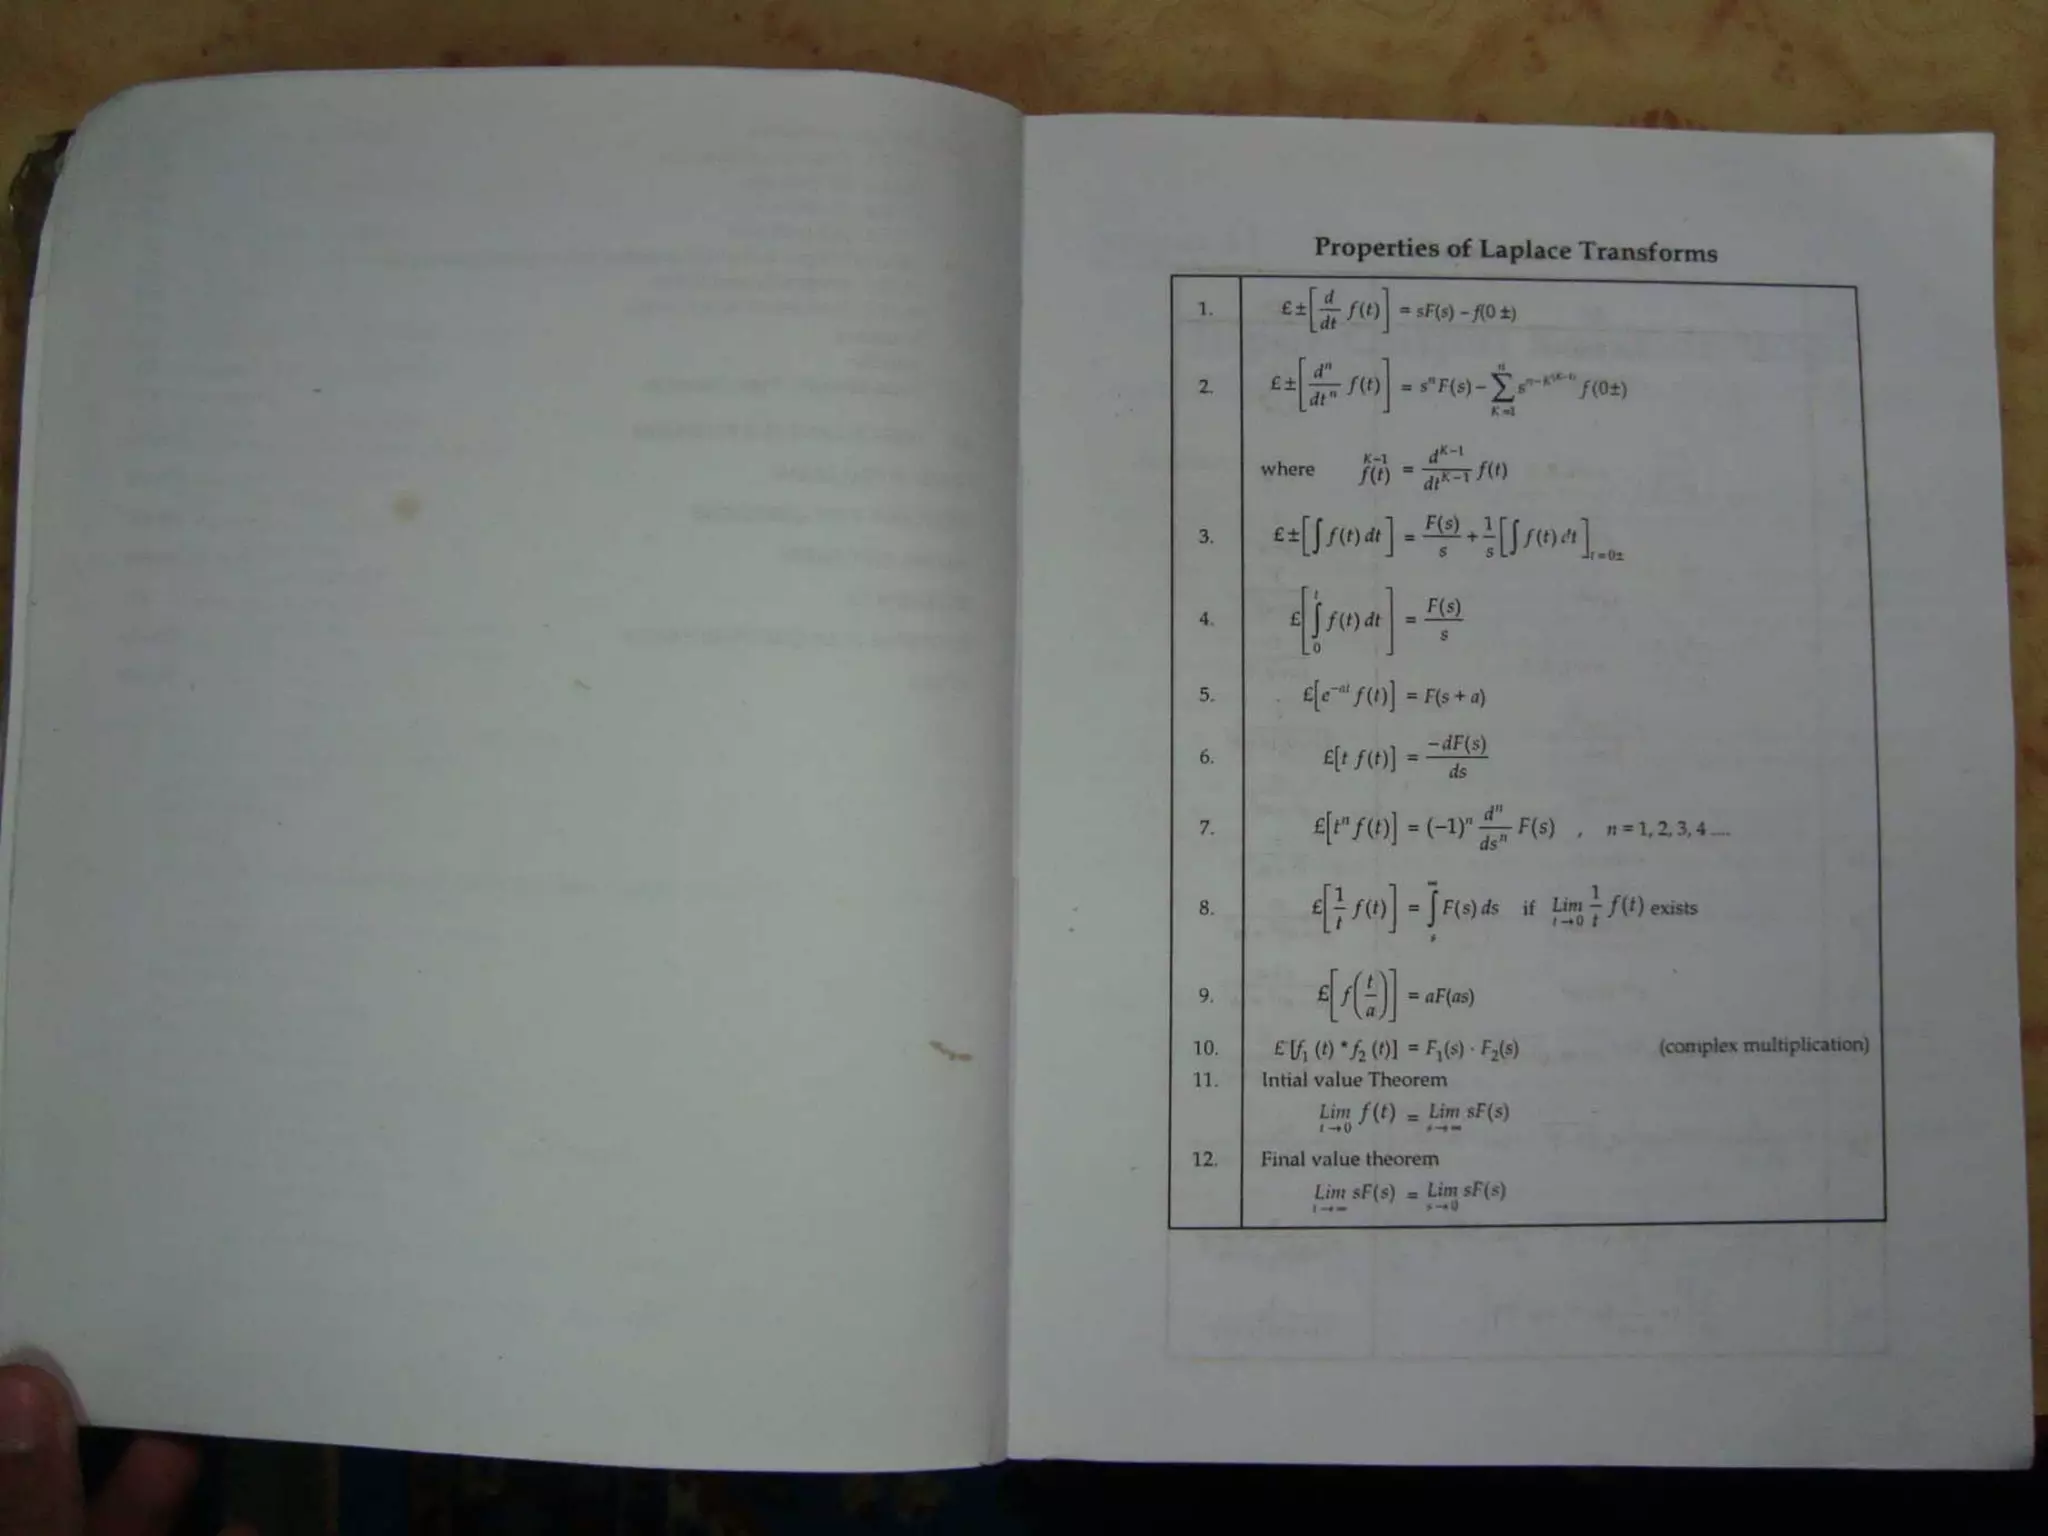 Properties of Laplace Transforms
1. £±[d/dt f(t)] = sF(s) – f(0 ±)
2. £±[dⁿ/dtⁿ f(t)] = sⁿF(s) – ∑_{K=1}^{n} s^{n–K^{(K–1)}} f(0±)
where f(t)^{K–1} = d^{K–1}/dt^{K–1} f(t)
3. £±[∫ f(t) dt] = F(s)/s + 1/s [∫ f(t) dt]_{t=0±}
4. £[∫_0^t f(t) dt] = F(s)/s
5. £[e^{–at} f(t)] = F(s + a)
6. £[t f(t)] = –dF(s)/ds
7. £[tⁿ f(t)] = (–1)ⁿ dⁿ/dsⁿ F(s) , n = 1, 2, 3, 4 ....
8. £[1/t f(t)] = ∫_s^∞ F(s) ds if Lim_{t→0} 1/t f(t) exists
9. £[f(t/a)] = aF(as)
10. £ [f₁ (t) * f₂ (t)] = F₁(s) · F₂(s) (complex multiplication)
11. Intial value Theorem
Lim_{t→0} f(t) = Lim_{s→∞} sF(s)
12. Final value theorem
Lim_{t→∞} sF(s) = Lim_{s→0} sF(s)